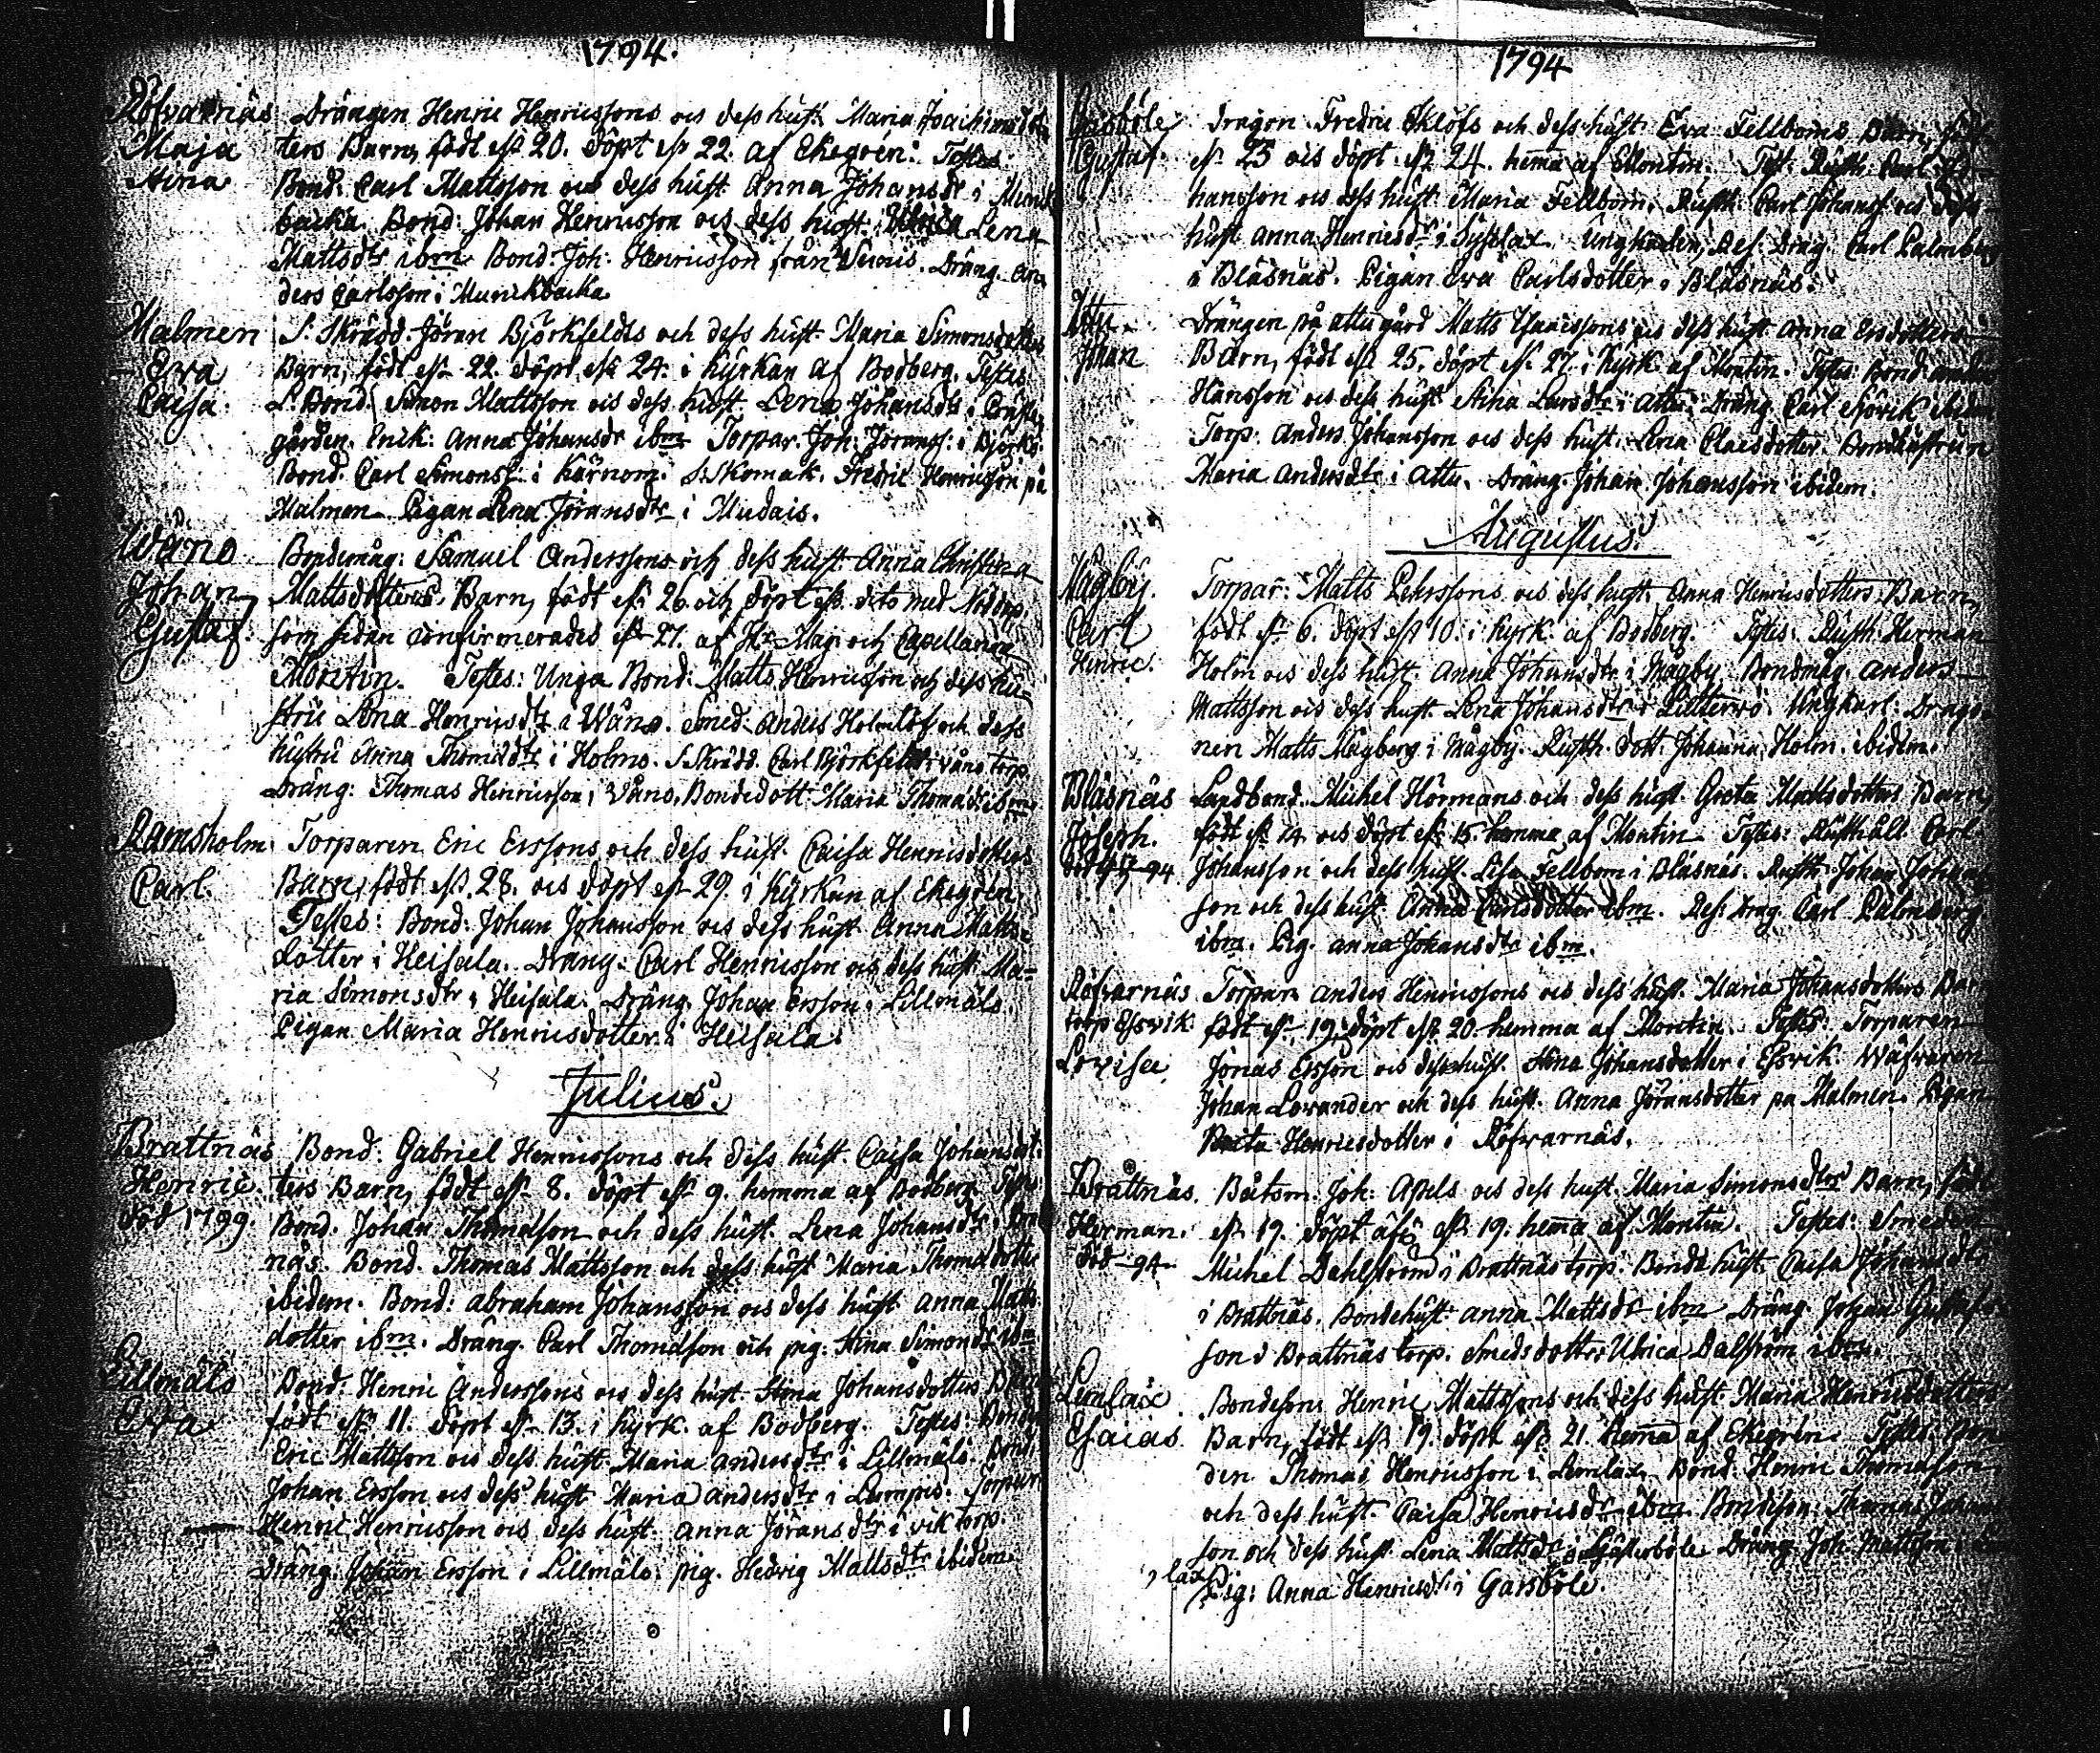 1794.
Röfvarnäs Drängen Henric Henricssons ocs dess hust. Maria Joachimsdot
Maja ters Barn, födt d. 20. döpt d. 22. af Ekegrén. Testes:
Stina Bond. Carl Mattsson ocs dess hust. Anna Johansdr i Munk
backa. Bond: Johan Henricsson ocs dess hust. Lena
Mattsdtr ibm. Bond: Joh: Henricsson från Dräng. An
ders Carlsson i Munckbacka
Malmen S. Skrädd. Jöran Björkfeldts och dess hust. Maria Simonsdotters
Eva Barn, födt d. 22. döpt d. 24. i Kyrkan af Bodberg. Testes
Caisa. L. Bond. Simon Mattsson ocs dess hust. Lena Johansdr i
gården. Enk: Anna Johansdr ibm Torpar. Joh: Joranss: i
Bond. Carl Simonss: i Kärnom. S. Skomak. Fredric Henricsson på
Malmen. Pigan Lena Joransdtr i Mudais.
Wånö Bondemåg: Samuel Anderssons och dess hust. Anna Christina
Johan Mattsdotters Barn, födt d. 26. och döpt d. dito med Nöddop,
Gustaf. som sedan confirmerades d. 27. af Hr Mag. och Capellanen
Montin. Testes: Unga Bond: Matts Henricsson och dess hu-
stru Lena Henricsdtr i Wånö. Smed. Anders Holmlöf och dess
hustru Anna Thomasdtr i Holmo. S. Skrädd. Carl Björkfeldt i våno torp.
Dräng: Thomas Henricsson i Våno. Bondedott. Maria Thomasdr ibm
Ramsholm Torparen Eric Erssons och dess hust. Caisa Henricsdotters
Carl. Barn, födt d. 28. ocs döpt d. 29. i Kyrkan af Ekegrén,
Testes: Bond: Johan Johansson ocs dess hust. Anna Matts-
dotter i Heisala. Dräng. Carl Henricsson ocs dess hust. Ma-
ria Simonsdtr i Heisala. Dräng. Johan Ersson i Lillmälo.
Pigan Maria Henricsdotter i Heisala.
Julius.
Brattnäs Bond: Gabriel Henricssons och dess hust. Caisa Johansdot-
Henric. ters Barn, födt d. 8. döpt d. 9. hemma af Bodberg. Testes
död 1799. Bond. Johan Thomasson och dess hust. Lena Johansdtr
näs. Bond. Thomas Mattsson och dess hust Maria Thomasdotter
ibidem. Bond: Abraham Johansson ocs dess hust Anna Matts
dotter ibm. Dräng. Carl Thomasson och pig: Stina Simonsdr ibm
Lillmälo Bond: Henric Anderssons ocs dess hust. Stina Johansdotters Barn
Eva födt d. 11. döpt d. 13. i Kyrk. af Bodberg. Testes: Bond
Eric Mattsson ocs dess hust. Maria Andersdtr i Lillmälo. Bond.
Johan Ersson ocs dess hust Maria Andersdtr i Lempis. Torparn
Henric Henricsson ocs dess hust. Anna Joransdtr i vik torp.
Dräng. Johan Ersson i Lillmälo. pig. Hedvig Mattsdtr ibidem
1794
Garsböle Dragon Fredric Eklöfs och dess hust. Eva Fellboms Barn, födt
Gustaf. d. 23 ocs döpt d. 24. hema af Montin. Test. Rusth: Carl Jo-
hansson ocs dess hust. Maria Fellbom. Rusth: Carl Johanss ocs dess
hust. Anna Henricsdtr i Sysslax. Ungkarlen, Res. Drag. Carl Palmberg
i Bläsnäs. Pigan Eva Carlsdotter i Bläsnäs.
Attu Drängen på Attu gård Matts Isacssons ocs dess hust. Anna Ersdotters
Johan Barn, födt d. 25. döpt d. 27. i Kyrk. af Montin. Testes: Bond.
Hansson ocs dess hust. Stina Larsdtr i Attu. Dräng. Carl Sjövik ibidem
Torp. Anders Johansson ocs dess hust. Lena Claesdotter. Bondhustrun
Maria Andersdtr i Attu. Dräng. Johan Johansson ibidem.
Augustus.
Mågby. Torpar: Matts Pehrssons ocs dess hust. Anna Henricsdotters Barn,
Carl födt d. 6. döpt d. 10. i Kyrk. af Bodberg. Testes: Rusth. Herman
Henric. Holm ocs dess hust. Anna Johansdtr i Mågby. Bondmåg. Anders
Mattsson ocs dess hust. Lena Johansdtr i Ungkarl: Drago-
nen Matts Mågberg i Mågby. Rusth. dott. Johanna Holm ibidem.
Bläsnäs Landbond. Michel Hörmans och dess hust. Greta Mattsdotters Barn,
Joseph. födt d. 14 ocs döpt d. 15. hemma af Montin. Testes: Rusthåll. Carl
död 94. Johansson och dess hust. Lisa Fellbom i Bläsnäs. Rusth. Johan Johans
son och dess hust. Anna Carlsdotter ibm. Res. Drag. Carl Palmberg
ibm. Pig. Anna Johansdtr ibm.
Röfvarnäs Torpar. Anders Henricssons ocs dess hust. Maria Johansdotters Bar
torp Essvik. födt d. 19. döpt d. 20. hemma af Montin. Testes: Torparen
Lovisa Jonas Ersson ocs dess hust. Stina Johansdotter i Essvik. Wäfvaren
Johan Lovander och dess hust. Anna Joransdotter på Malmen. Pigan
Henricsdotter i Röfvarnäs.
Brattnäs. Båtsm. Joh: Apels ocs dess hust. Maria Simonsdtrs Barn, födt
Herman. d. 19. döpt d. 19. hema af Montin. Testes: Smeden
död 94. Michel Dahlström i Brattnäs torp. Bonde hust. Caisa Johansdtr
i Brattnäs. Bondehust. Anna Mattsdr ibm Dräng. Johan Gustafs
son i Brattnäs torp. Smedsdotter Ulrica Dalström ibm.
Lemlax Bondeson Henric Mattssons och dess hust. Maria Henricsdotters
Esaias. Barn, födt d. 19. döpt d. 21. hema af Ekegrén. Testes: Bon
den Thomas Henricsson i Lemlax. Bond. Henric Thomasson
och dess hust. Caisa Henricsdr ibm. Bondeson. Thomas Johans
son och dess hust. Lena Mattsdr i Gusterböle Dräng. Joh. Mattsson i
lax Pig: Anna Henricsdr i Garsböle.